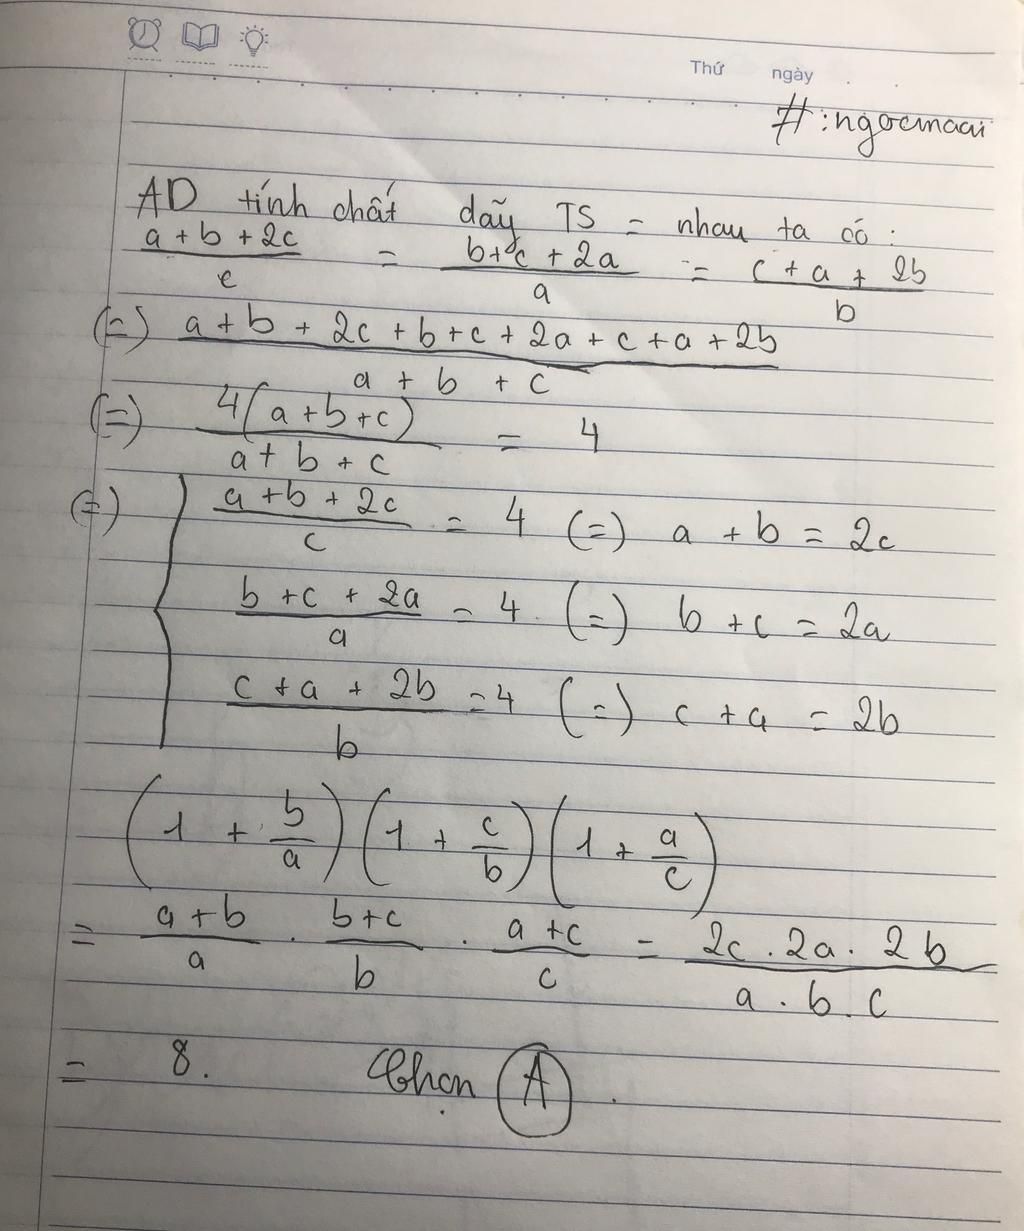 Thứ ngày
#:ngocmaai
AD tính chất dãy TS = nhau ta có:
a + b + 2c / c = b + c + 2a / a = c + a + 2b / b
(=) a + b + 2c + b + c + 2a + c + a + 2b / a + b + c
(=) 4(a + b + c) / a + b + c = 4
(=) { a + b + 2c / c = 4 (=) a + b = 2c
b + c + 2a / a = 4 (=) b + c = 2a
c + a + 2b / b = 4 (=) c + a = 2b
(1 + b/a) (1 + c/b) (1 + a/c)
= a + b / a . b + c / b . a + c / c = 2c . 2a . 2b / a . b . c
= 8. Chọn A .